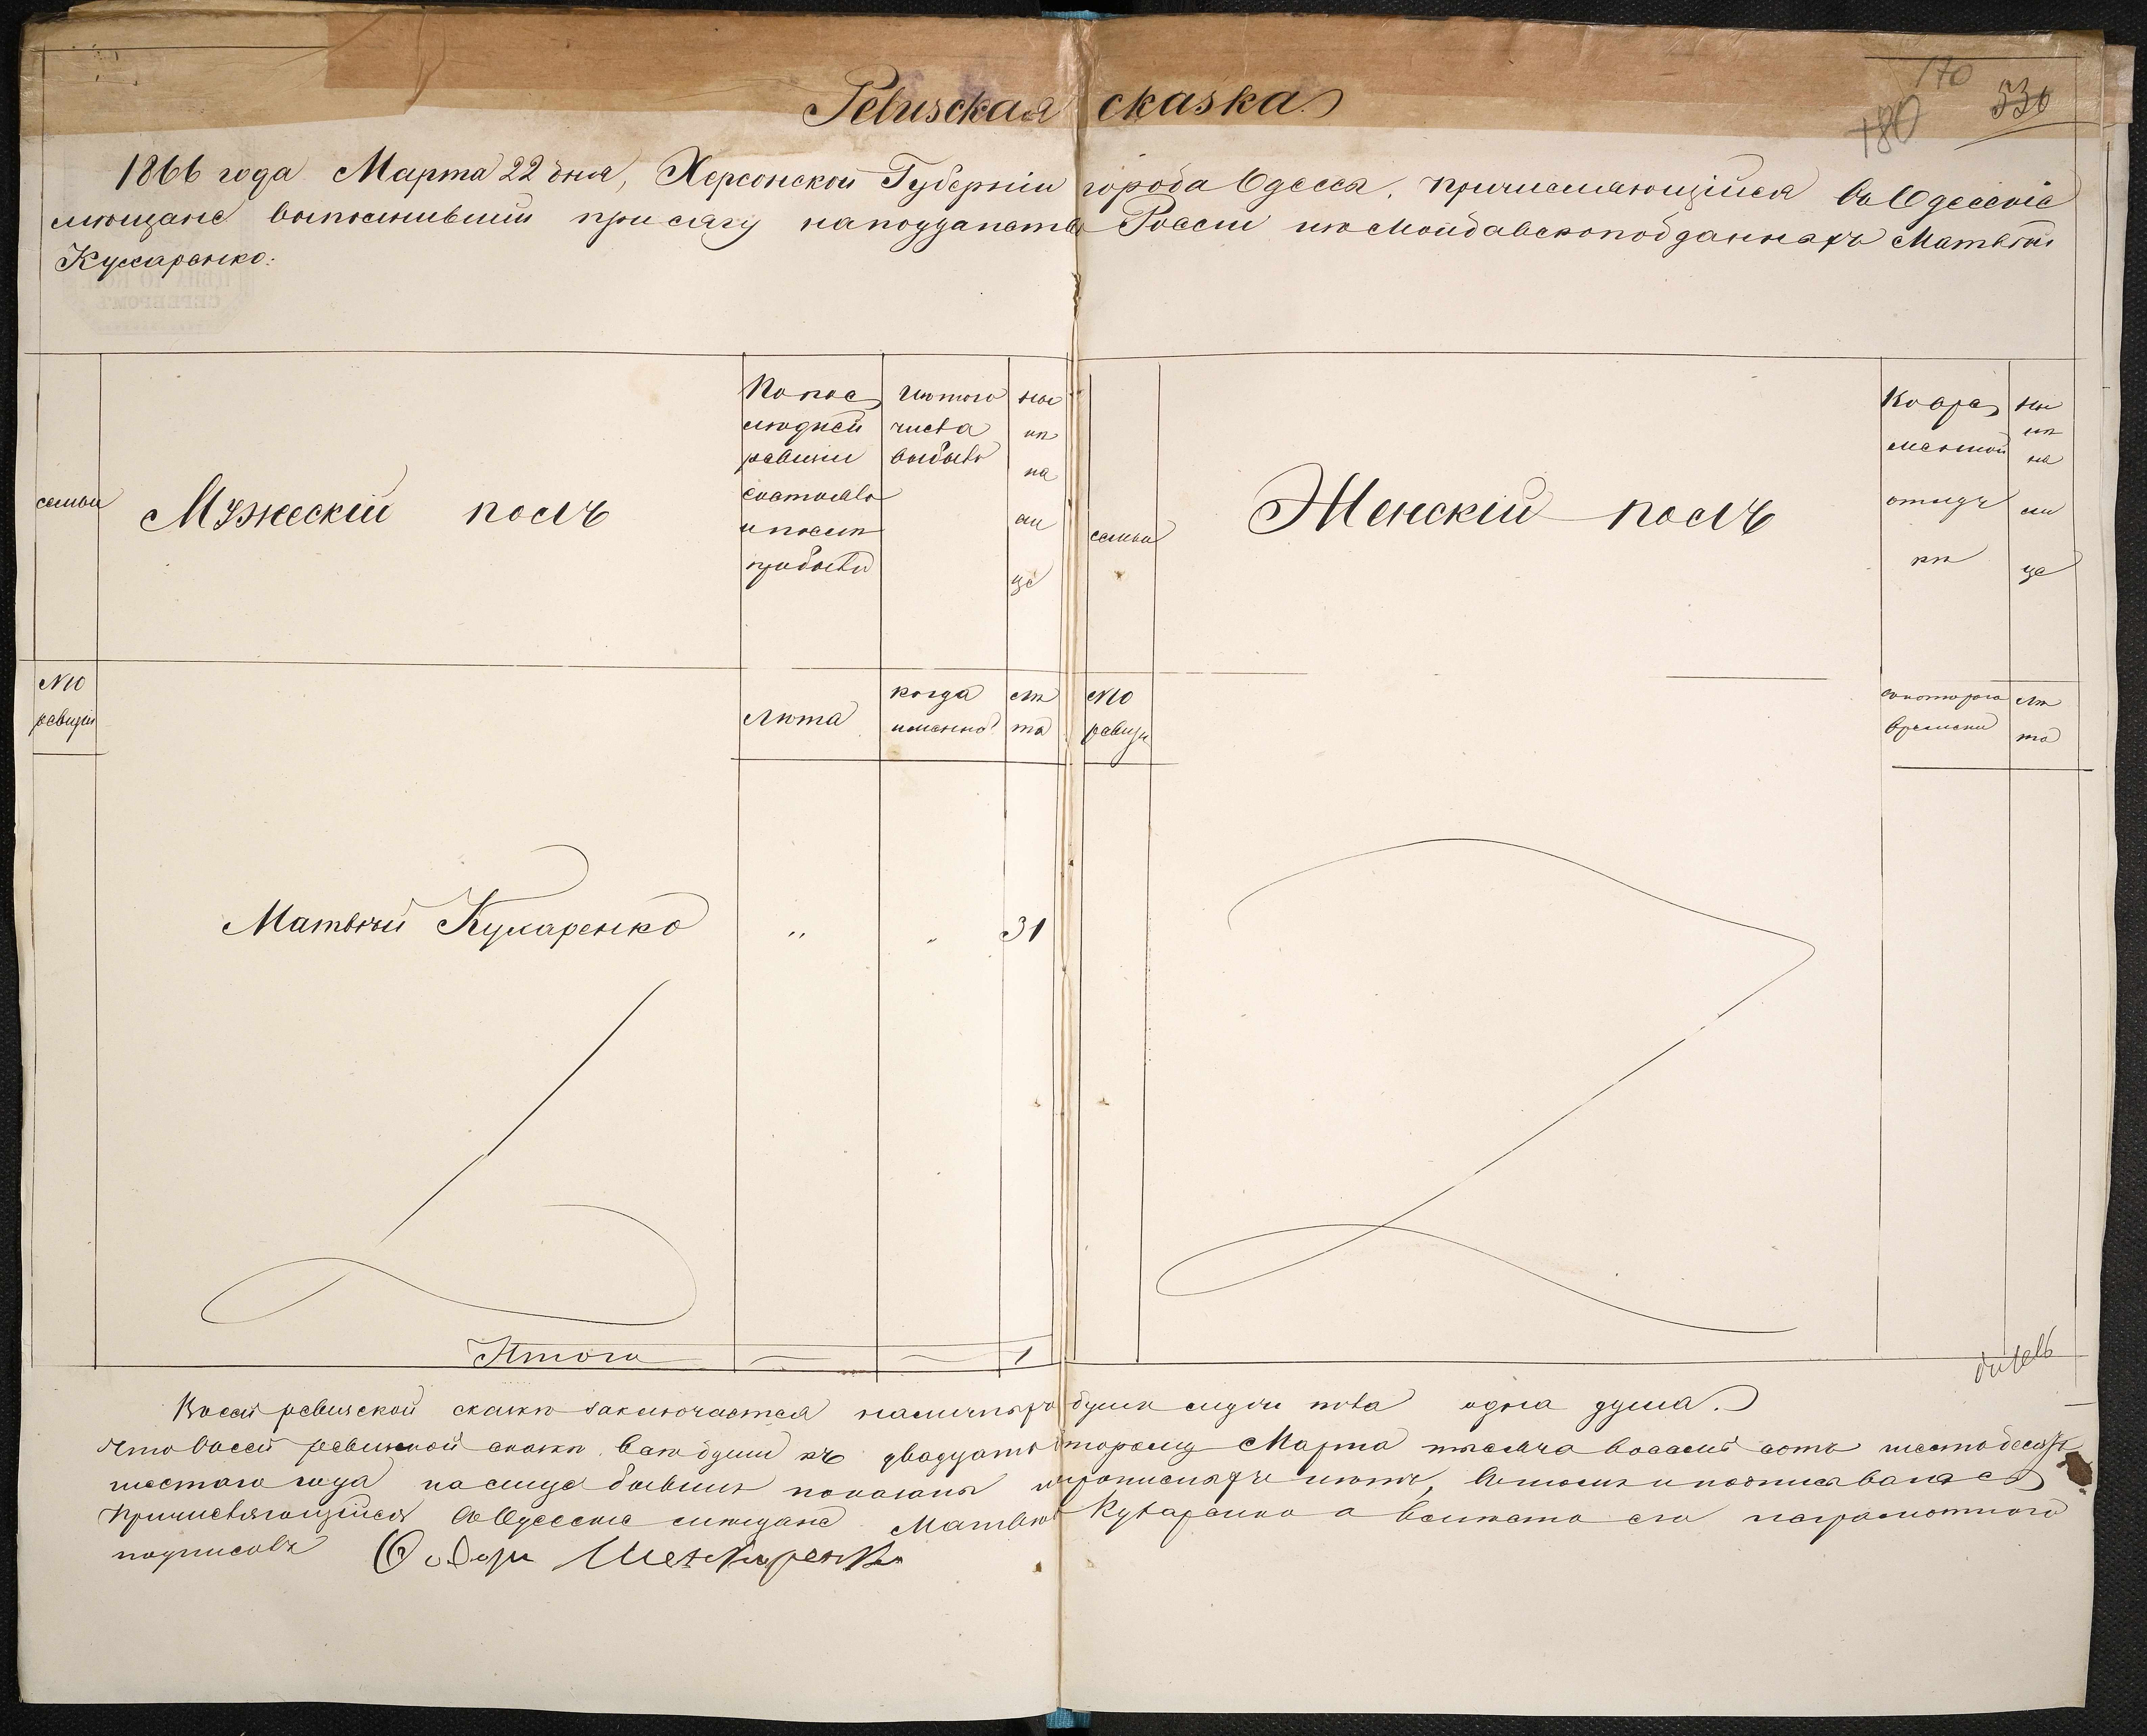 Ревизская сказка
170
180
530
1866 года Марта 22 дня, Херсонской Губерніи города Одесса, причисляющійся въ Одесскіе
мющане выполнивший присягу на подданство России изъ Молдавскоподданныхъ Матвей
Кухаренко.
семьи
Мужескій полъ
По пос
людней
ревизіи
состояло
и после
прибыло
Изъ того
числа
выбыло
ныне на лице
семьи
Женскій полъ
Во вре
менной
отлуч
ке
ныне на ли це
№10
ревизіи
Лета
когда
именно
ле
та
№10
ревизи
съ котораго
времени
ле
та
Матвей Кухаренко " " 31
Итого — — 1
Въ сей ревизской сказке заключается наличныхъ душъ мужескаго пола одна душа.
Что в сей ревизской сказке все души къ двадцать второму Марта тысяча восемьсотъ шестьдесятъ
шестаго года на лице бывшие показаны и прописныхъ нетъ, въ томъ и подписывался
причисляющійся въ Одесские мещане Матвей Кухаренко а вместо его неграмотнаго
подписалъ